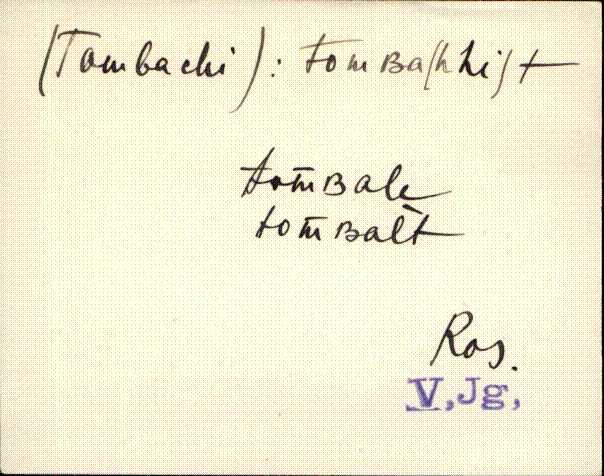 (Tombachi): tomʙa(hhi)t
tom̄ʙale
tom̄ʙalt
Ros.
V, Jg,